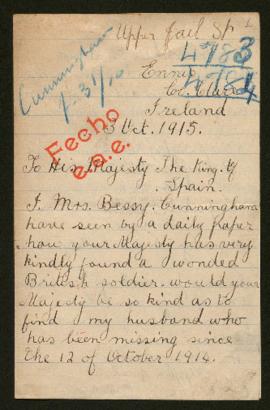 Upper Jail St
4783
4784
Ennis
Co. Clare
Cunningham
1-31/10
Ireland
3 Oct. 1915.
Fecho
e.e.e.
To His Majesty The King of
Spain.
I. Mrs. Bessy. Cunningham
have seen by a daily paper
how your Majesty has very
kindly found a wonded
British soldier. would your
Majesty be so kind as to
find my husband who
has been missing since
the 12 of October 1914.